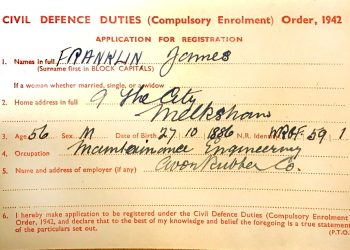 CIVIL DEFENCE DUTIES (Compulsory Enrolment) Order, 1942
APPLICATION FOR REGISTRATION
1. Names in full FRANKLIN James
(Surname first in BLOCK CAPITALS)
If a woman whether married, single, or widow
2. Home address in full 9 The City
Melksham
3. Age 56 Sex M Date of Birth 27 10 1886 N.R. Identity 59 1
4. Occupation Maintainance Engineering
5. Name and address of employer (if any) Avon Rubber Co.
6. I hereby make application to be registered under the Civil Defence Duties (Compulsory Enrolment)
Order, 1942, and declare that to the best of my knowledge and belief the foregoing is a true statement
of the particulars set out. (P.T.O.